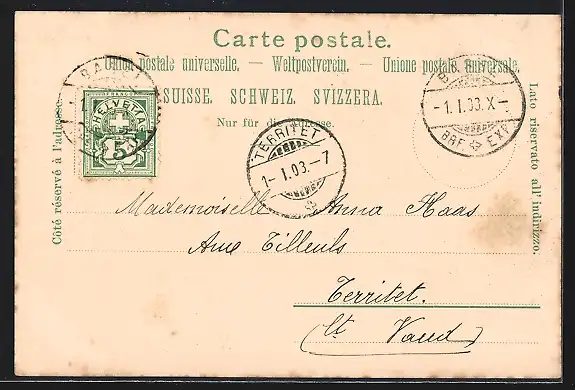 Carte postale.
Union postale universelle. — Weltpostverein. — Unione postale universale.
SUISSE. SCHWEIZ. SVIZZERA.
Nur für die Adresse.
Côté réservé à l'adresse.
Lato riservato all' indirizzo.
HELVETIA
5
TERRITET
1-.I.03.-7
-1.I.03.X-
BRF EXP.
Mademoiselle Anna Haas
Tilleuls
Territet.
(Ct. Vaud)